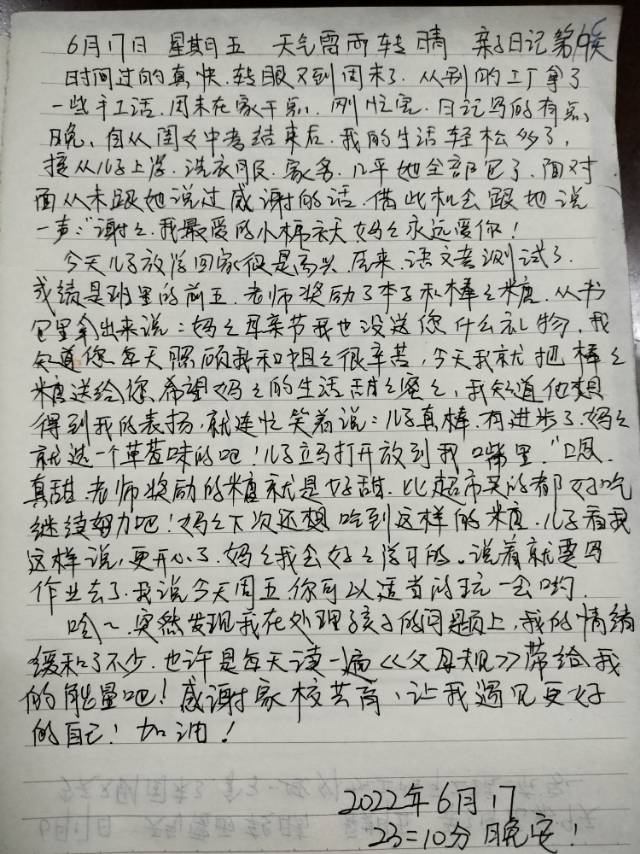 6月17日 星期五 天气雷雨转晴 亲子日记第19天
时间过的真快.转眼又到周末了.从别的工厂拿了
一些手工活.周末在家干点.刚忙完.日记写的有点
晚、自从闺女中考结束后.我的生活轻松多了,
接从儿子上学.洗衣服.家务.几乎她全部包了.面对
面从未跟她说过感谢的话.借此机会跟她说
一声:“谢々.我最爱的小棉袄妈々永远爱你!
今天儿子放学回家很是高兴.原来.语文考测试了.
成绩是班里的前五.老师奖励了本子和棒々糖.从书
包里拿出来说:妈々母亲节我也没送您什么礼物.我
知道您每天照顾我和姐々很辛苦,今天我就把棒々
糖送给您.希望妈々的生活甜々蜜々,我知道他想
得到我的表扬,就连忙笑着说:儿子真棒.有进步了.妈々
就选一个草莓味的吧!儿子立马打开放到我嘴里.“嗯.
真甜.老师奖励的糖就是好甜.比超市买的都好吃
继续努力吧!妈々下次还想吃到这样的糖.儿子看我
这样说,更开心了.妈々我会好々学习的。说着就要写
作业去了.我说今天周五你可以适当的玩一会哟.
哈~.突然发现我在处理孩子的问题上,我的情绪
缓和了不少.也许是每天读一遍《父母规》带给我
的能量吧!感谢家校共育、让我遇见更好
的自己!加油!
2022年6月17
23=10分晚安!